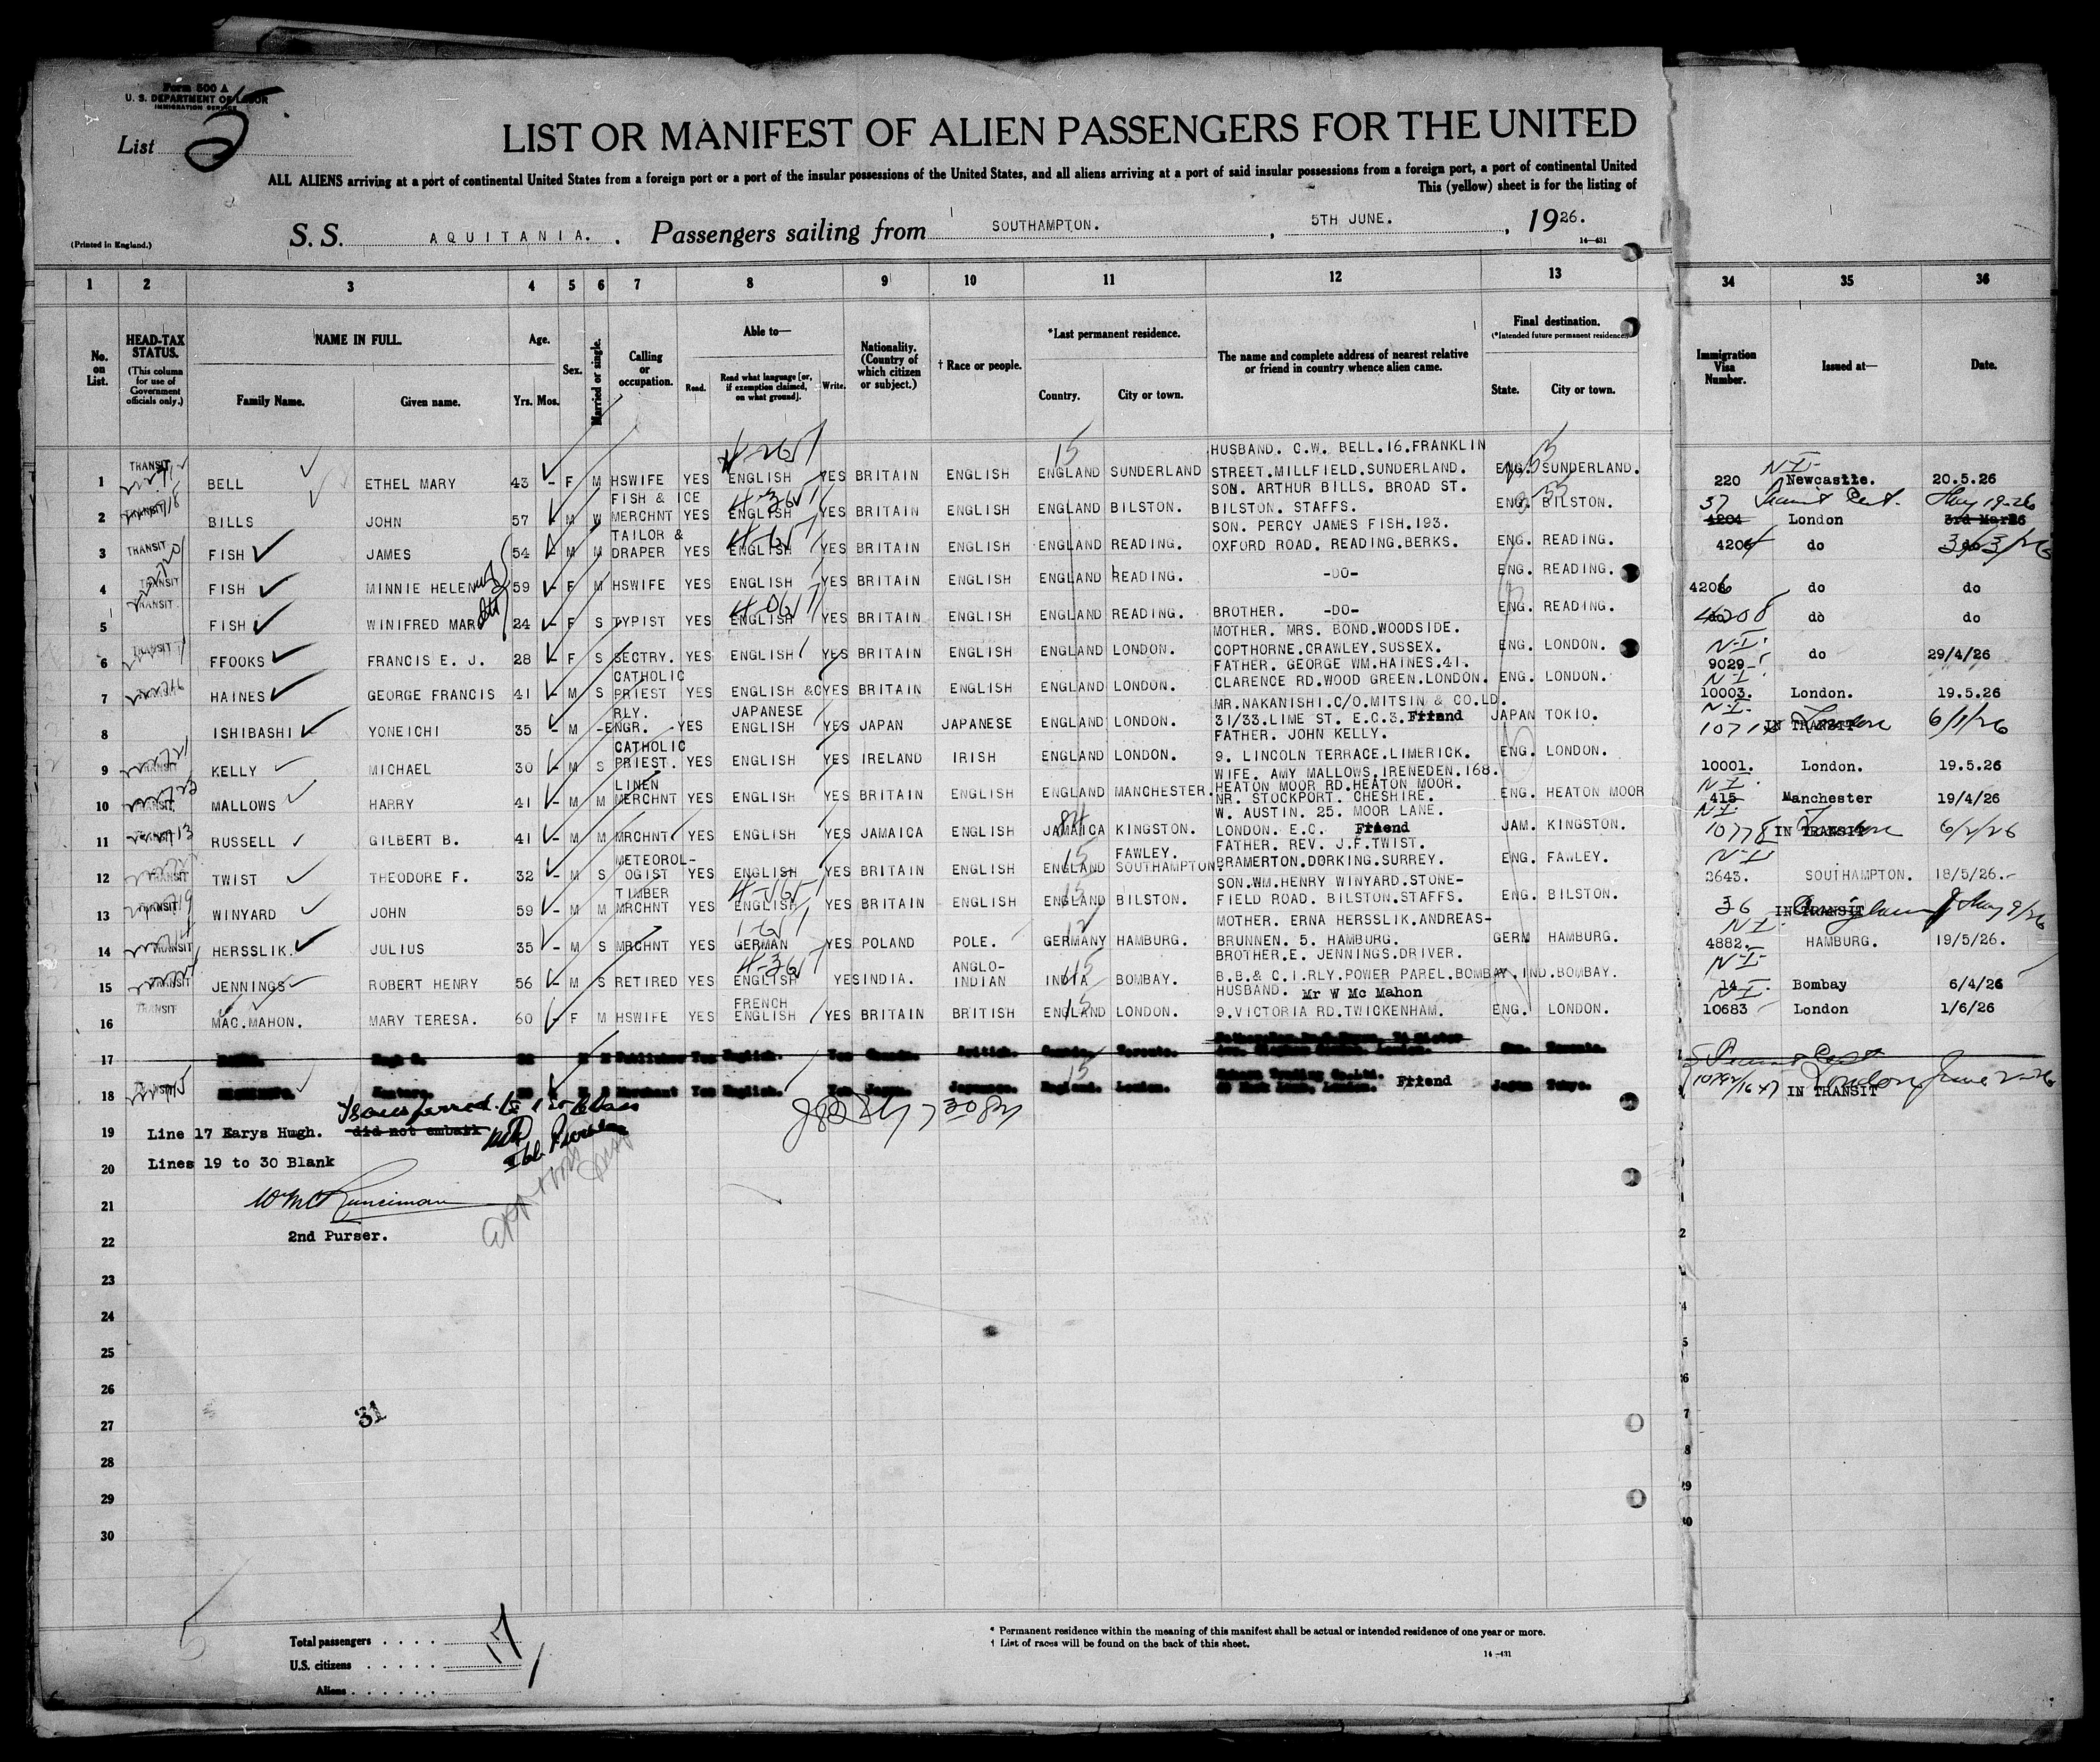 Form 500 A
U. S. DEPARTMENT OF LABOR
IMMIGRATION SERVICE
List 2
LIST OR MANIFEST OF ALIEN PASSENGERS FOR THE UNITED
ALL ALIENS arriving at a port of continental United States from a foreign port or a port of the insular possessions of the United States, and all aliens arriving at a port of said insular possessions from a foreign port, a port of continental United
This (yellow) sheet is for the listing of
(Printed in England.)
S. S. AQUITANIA. , Passengers sailing from SOUTHAMPTON. , 5TH JUNE. , 1926.
14—431
1 2 3 4 5 6 7 8 9 10 11 12 13 34 35 36
No. on List.
HEAD-TAX STATUS.
(This column for use of Government officials only.)
NAME IN FULL.
Family Name. Given name.
Age.
Yrs. Mos.
Sex.
Married or single.
Calling or occupation.
Able to—
Read. Read what language [or, if exemption claimed, on what ground]. Write.
Nationality. (Country of which citizen or subject.)
† Race or people.
*Last permanent residence.
Country. City or town.
The name and complete address of nearest relative or friend in country whence alien came.
Final destination.
(*Intended future permanent residence.)
State. City or town.
Immigration Visa Number.
Issued at—
Date.
HUSBAND. C.W. BELL.16.FRANKLIN
1 TRANSIT BELL ETHEL MARY 43 - F M HSWIFE YES ENGLISH YES BRITAIN ENGLISH ENGLAND SUNDERLAND STREET.MILLFIELD.SUNDERLAND. ENG. SUNDERLAND. 220 Newcastle. 20.5.26
FISH & ICE SON. ARTHUR BILLS. BROAD ST.
2 TRANSIT BILLS JOHN 57 - M W MERCHNT YES ENGLISH YES BRITAIN ENGLISH ENGLAND BILSTON. BILSTON. STAFFS. ENG. BILSTON. 37 4204 London May 19-26 3rd Mar26
TAILOR & SON. PERCY JAMES FISH.193.
3 TRANSIT FISH JAMES 54 - M M DRAPER YES ENGLISH YES BRITAIN ENGLISH ENGLAND READING. OXFORD ROAD. READING.BERKS. ENG. READING. 4204 do 3/3/26
4 TRANSIT FISH MINNIE HELEN 59 - F M HSWIFE YES ENGLISH YES BRITAIN ENGLISH ENGLAND READING. -DO- ENG. READING. 4206 do do
5 TRANSIT FISH WINIFRED MAR 24 - F S TYPIST YES ENGLISH YES BRITAIN ENGLISH ENGLAND READING. BROTHER. -DO- ENG. READING. 4208 do do
MOTHER. MRS. BOND.WOODSIDE.
6 TRANSIT FFOOKS FRANCIS E. J. 28 - F S SECTRY. YES ENGLISH YES BRITAIN ENGLISH ENGLAND LONDON. COPTHORNE.CRAWLEY.SUSSEX. ENG. LONDON. N-I- 9029 do 29/4/26
CATHOLIC FATHER. GEORGE WM.HAINES.41.
7 HAINES GEORGE FRANCIS 41 - M S PRIEST YES ENGLISH &C YES BRITAIN ENGLISH ENGLAND LONDON. CLARENCE RD.WOOD GREEN.LONDON. ENG. LONDON. N-I- 10003. London. 19.5.26
RLY. JAPANESE MR.NAKANISHI.C/O.MITSIN & CO.LD.
8 ISHIBASHI YONEICHI 35 - M - ENGR. YES ENGLISH YES JAPAN JAPANESE ENGLAND LONDON. 31/33.LIME ST. E.C.3. Friend JAPAN TOKIO. N-I- IN TRANSIT London
CATHOLIC FATHER. JOHN KELLY.
9 TRANSIT KELLY MICHAEL 30 - M S PRIEST. YES ENGLISH YES IRELAND IRISH ENGLAND LONDON. 9. LINCOLN TERRACE.LIMERICK. ENG. LONDON. 10001. London. 19.5.26
LINEN WIFE. AMY MALLOWS.IRENEDEN.168.
HEATON MOOR RD.HEATON MOOR.
10 TRANSIT MALLOWS HARRY 41 - M M MERCHNT YES ENGLISH YES BRITAIN ENGLISH ENGLAND MANCHESTER. NR. STOCKPORT. CHESHIRE. ENG. HEATON MOOR N-I- 415 Manchester 19/4/26
W. AUSTIN. 25. MOOR LANE.
11 TRANSIT RUSSELL GILBERT B. 41 - M M MRCHNT YES ENGLISH YES JAMAICA ENGLISH JAMAICA KINGSTON. LONDON. E.C. Friend JAM. KINGSTON. N-I- 10778 IN TRANSIT London 6/2/26
METEOROL- FAWLEY. FATHER. REV. J.F.TWIST.
12 TRANSIT TWIST THEODORE F. 32 - M S OGIST YES ENGLISH YES BRITAIN ENGLISH ENGLAND SOUTHAMPTON. BRAMERTON.DORKING.SURREY. ENG. FAWLEY. N-I- 2643. SOUTHAMPTON. 18/5/26.-
TIMBER SON.WM.HENRY WINYARD.STONE-
13 TRANSIT WINYARD JOHN 59 - M M MRCHNT YES ENGLISH YES BRITAIN ENGLISH ENGLAND BILSTON. FIELD ROAD. BILSTON.STAFFS. ENG. BILSTON. 36 IN TRANSIT May 9/26
MOTHER. ERNA HERSSLIK.ANDREAS-
14 TRANSIT HERSSLIK. JULIUS 35 - M S MRCHNT YES GERMAN YES POLAND POLE. GERMANY HAMBURG. BRUNNEN. 5. HAMBURG. GERM HAMBURG. N-I- 4882. HAMBURG. 19/5/26.
ANGLO- BROTHER.E. JENNINGS.DRIVER.
15 TRANSIT JENNINGS ROBERT HENRY 56 - M S RETIRED YES ENGLISH YES INDIA. INDIAN INDIA BOMBAY. B.B.& C.I.RLY.POWER PAREL.BOMBAY. IND.BOMBAY. N-I- 14 Bombay 6/4/26
FRENCH HUSBAND. Mr W Mc Mahon
16 TRANSIT MAC.MAHON. MARY TERESA. 60 - F M HSWIFE YES ENGLISH YES BRITAIN BRITISH ENGLAND LONDON. 9.VICTORIA RD.TWICKENHAM. ENG. LONDON. N-I- 10683 London 1/6/26
17 Hugh M M Publisher Yes English. Yes Canada. British. Canada. Toronto.
18 TRANSIT M Merchant Yes English. Yes Japan. Japanese. England. London. London. Friend Japan Tokyo. IN TRANSIT London June 2-26
Transferred to 1st Class
19 Line 17 Earys Hugh. did not embark
20 Lines 19 to 30 Blank
21 Wm Mc Runciman
22 2nd Purser.
23
24
25
26
27 31
28
29
30
Total passengers . . . . 17
U.S. citizens . . . . .
Aliens . . . . . .
* Permanent residence within the meaning of this manifest shall be actual or intended residence of one year or more.
† List of races will be found on the back of this sheet.
14—431